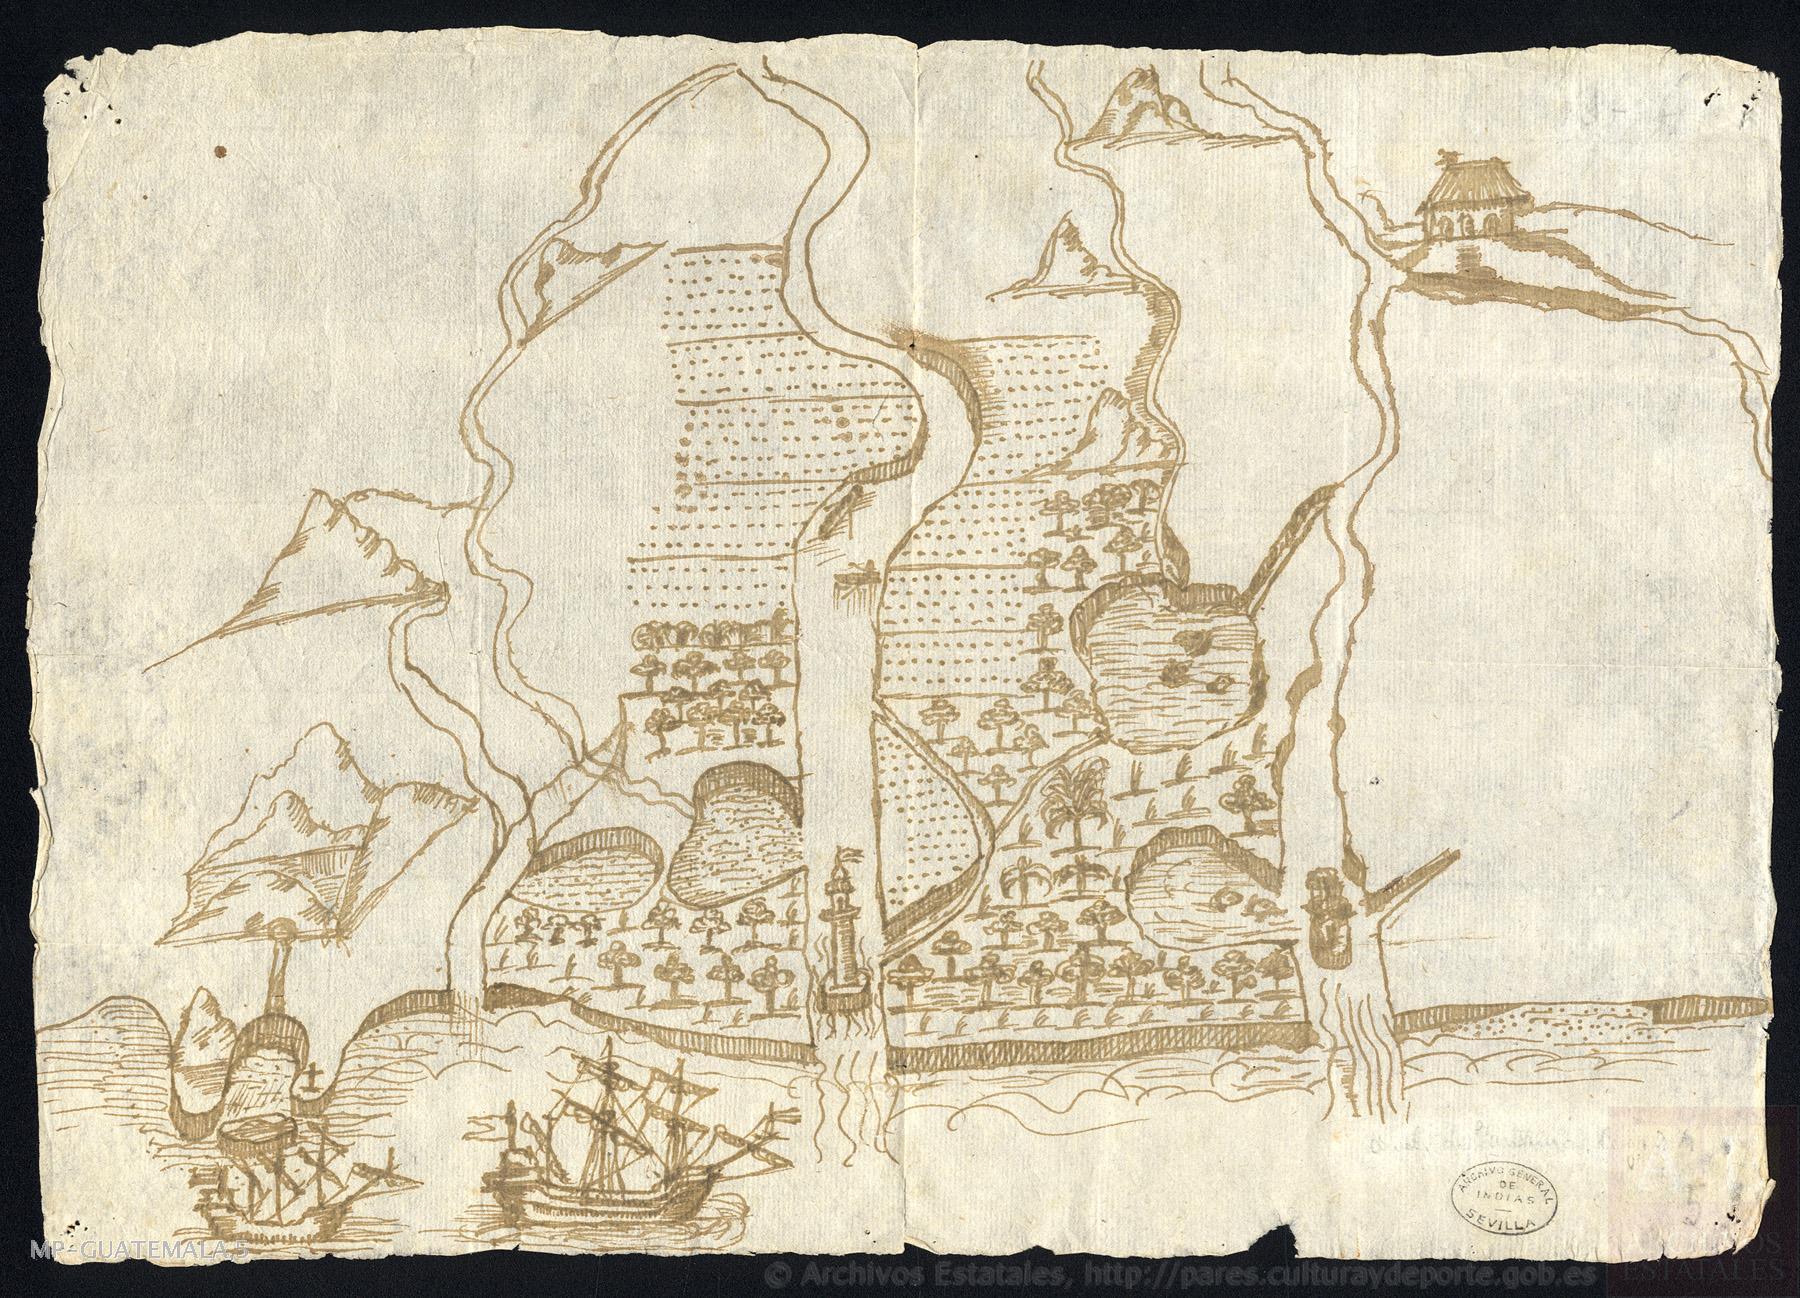 ARCHIVO GENERAL
DE
INDIAS
SEVILLA
MP-GUATEMALA,5
© Archivos Estatales, http://pares.culturaydeporte.gob.es
ARCHIVOS
ESTATALES